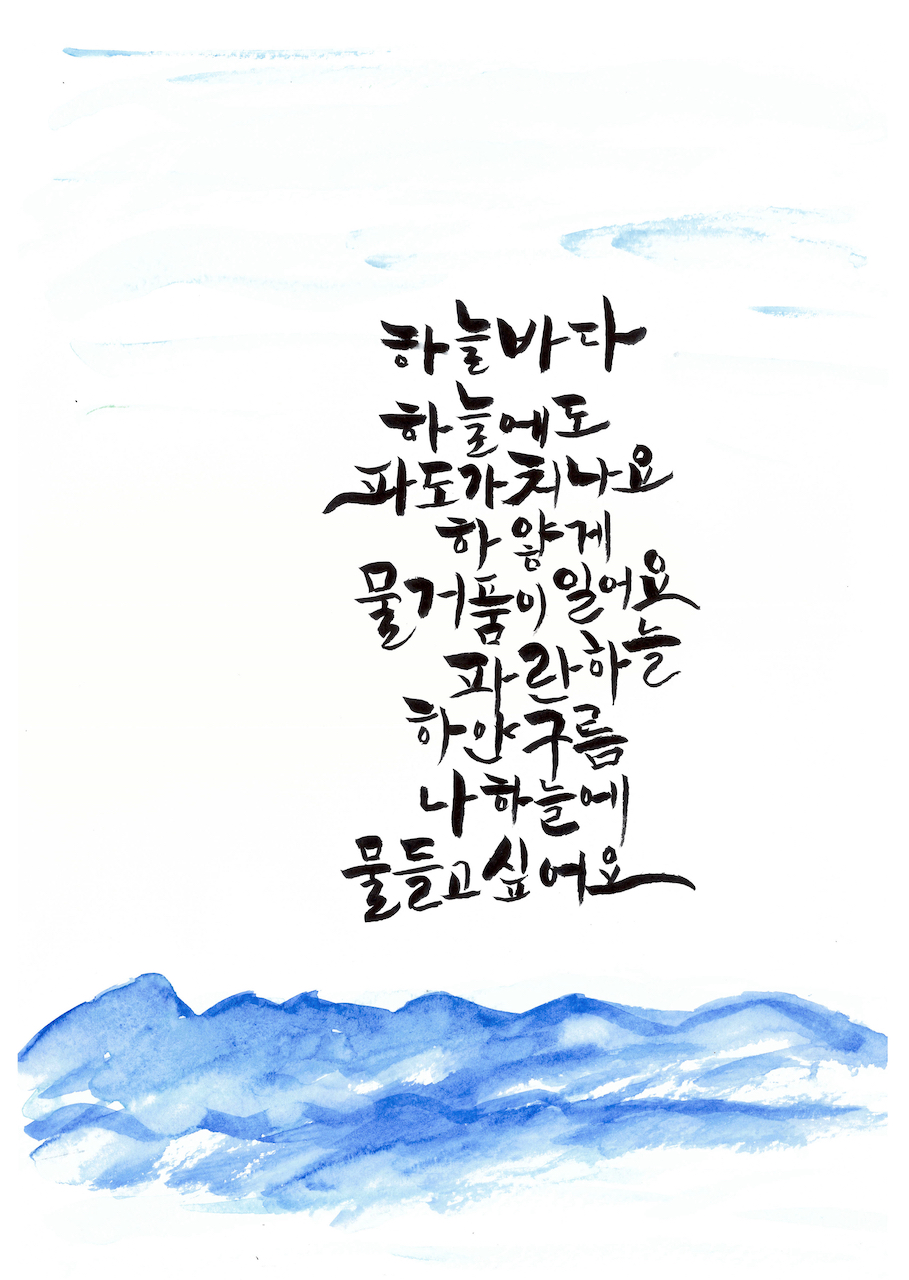 하늘바다
하늘에도
파도가치나요
하얗게
물거품이 일어요
파란하늘
하얀구름
나 하늘에
물들고싶어요